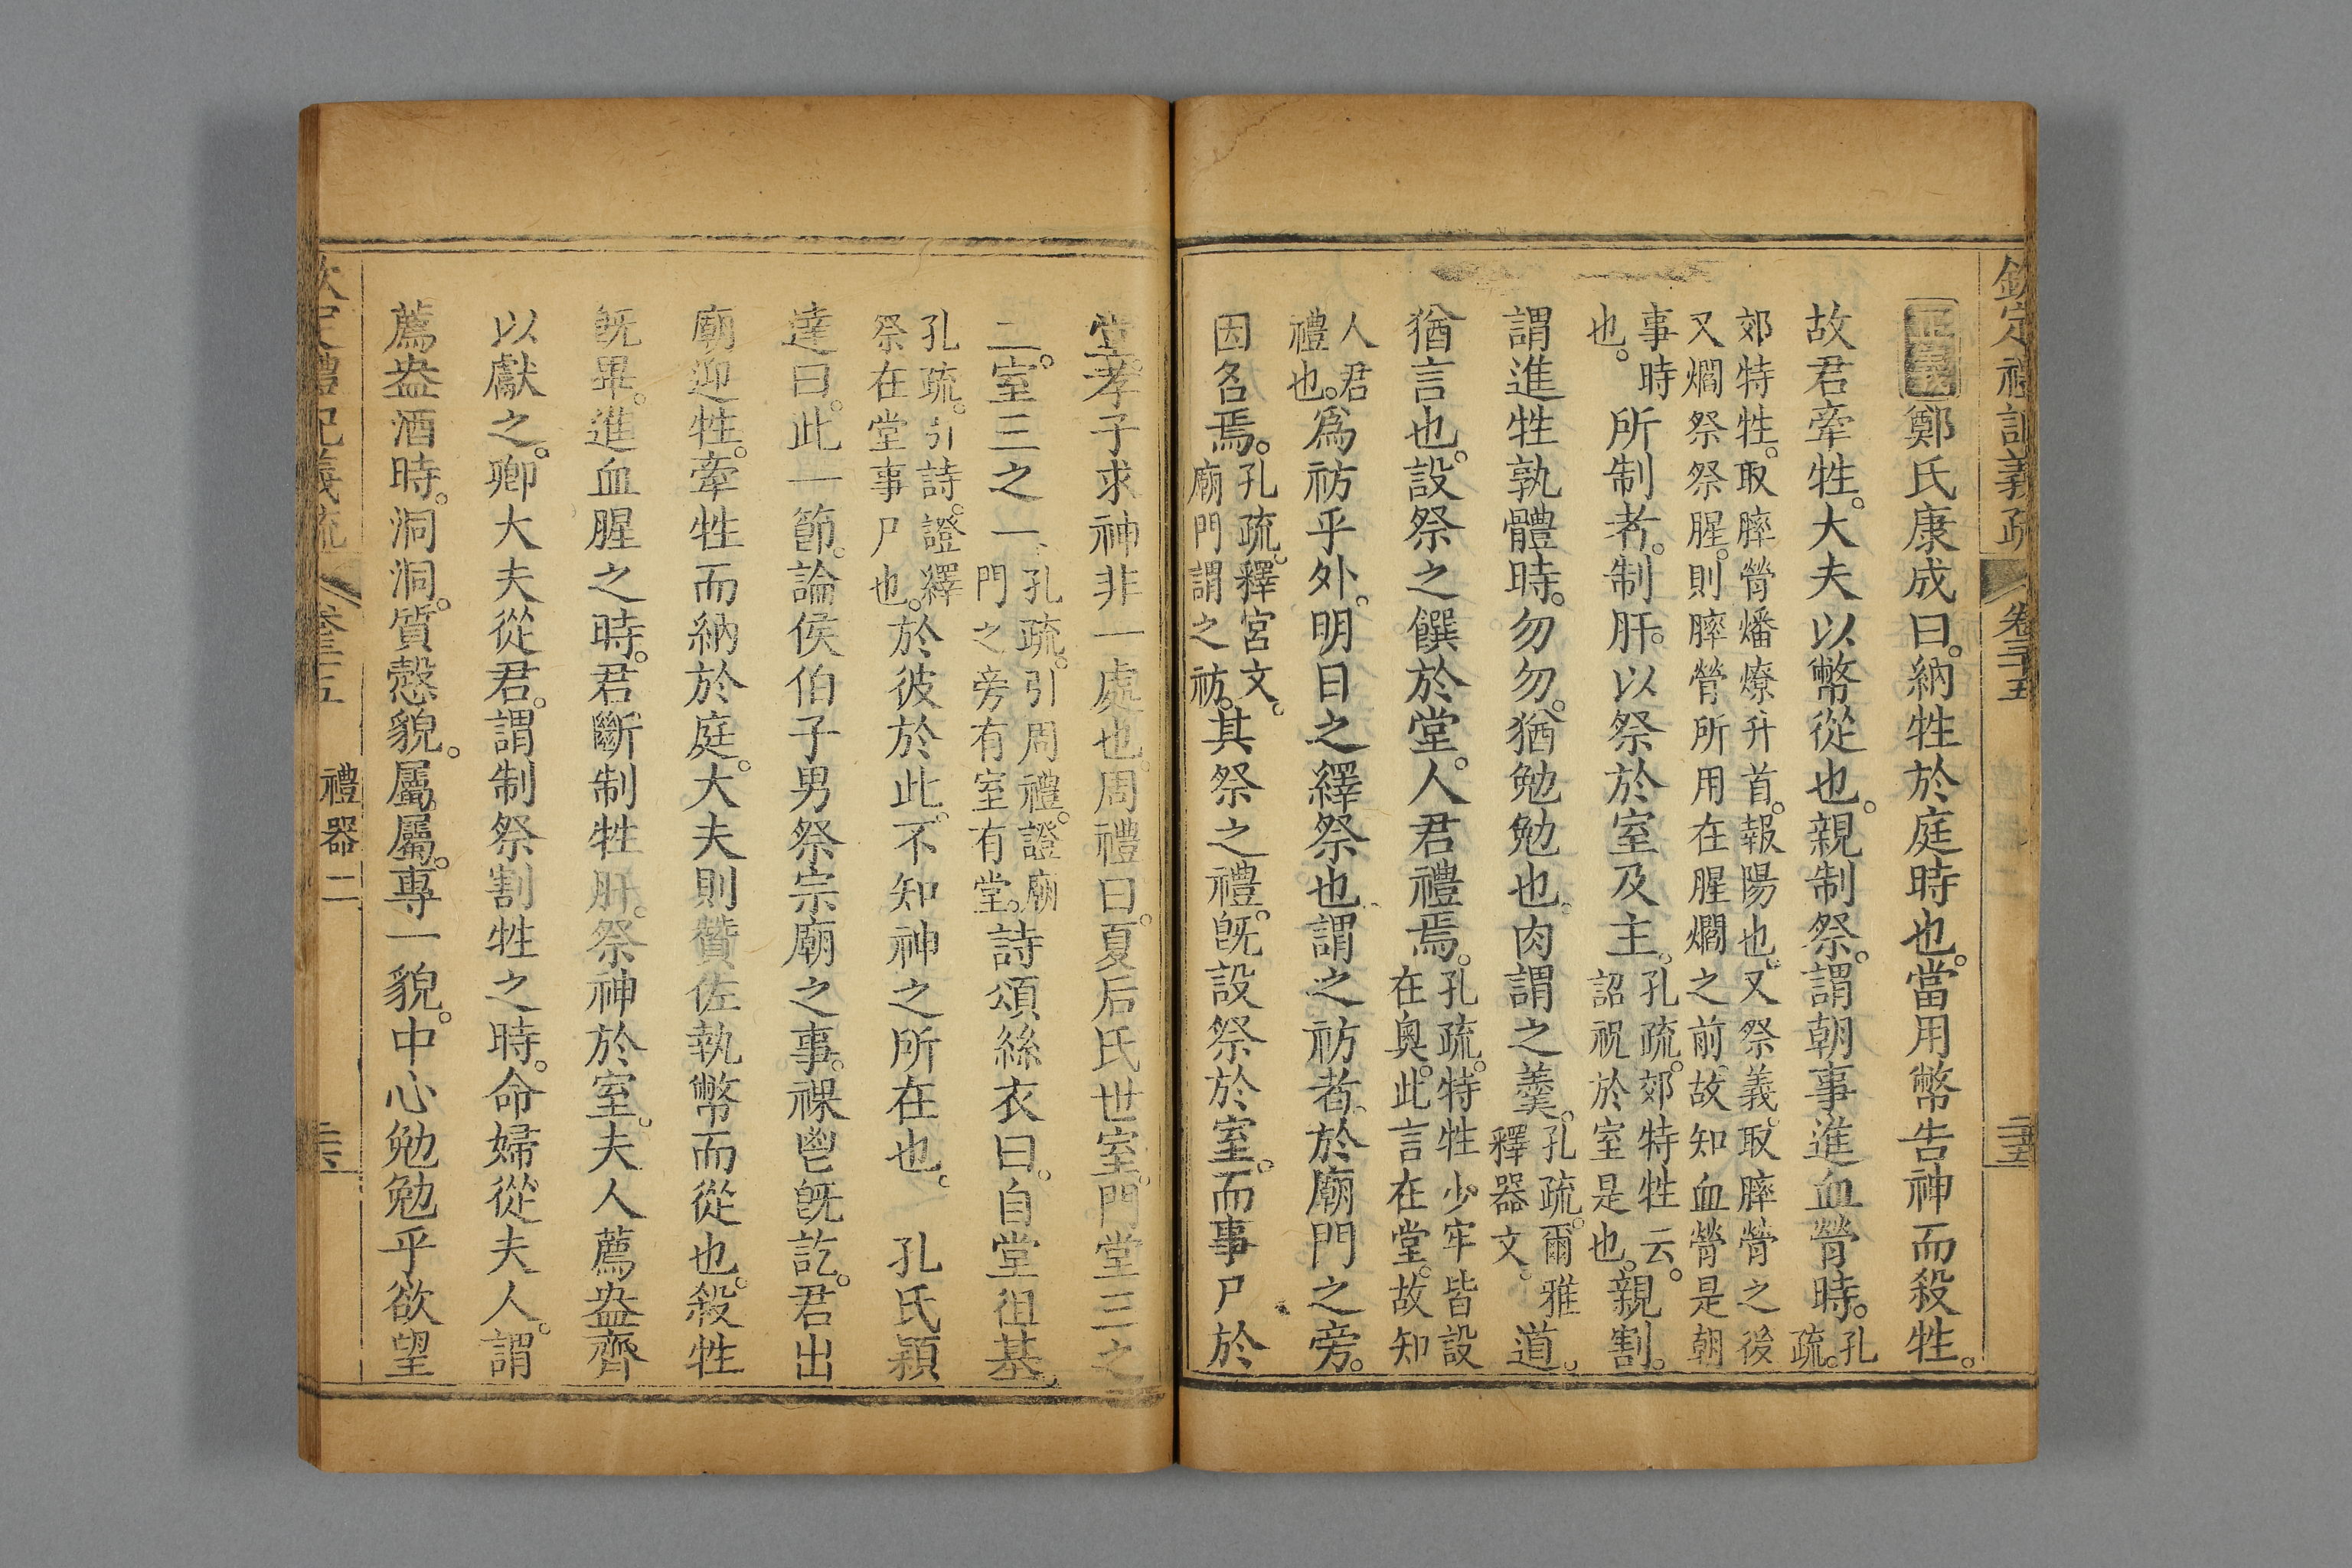 欽定禮記義疏 卷三十五
正義鄭氏康成曰。納牲於庭時也。當用幣告神而殺牲。
故君牽牲。大夫以幣從也。親制祭。謂朝事進血膋時。孔疏。
郊特牲。取膟膋燔燎升首。報陽也。又祭義。取膟膋之後
又爓祭祭腥。則膟膋所用在腥爓之前。故知血膋是朝
事時也。所制者。制肝。以祭於室及主。孔疏。郊特牲云。詔祝於室是也。親割。
謂進牲孰體時。勿勿。猶勉勉也。肉謂之羹。孔疏。爾雅釋器文。道。
猶言也。設祭之饌於堂。人君禮焉。孔疏。特牲少牢皆設在奧。此言在堂。故知
人君禮也。為祊乎外。明日之繹祭也。謂之祊者。於廟門之旁。
因名焉。孔疏。釋宮文。廟門謂之祊。其祭之禮。旣設祭於室。而事尸於
堂。孝子求神非一處也。周禮曰。夏后氏世室。門堂三之
二。室三之一。孔疏。引周禮。證廟門之旁有室有堂。詩頌絲衣曰。自堂徂基。
孔疏。引詩。證繹祭在堂事尸也。於彼於此。不知神之所在也。 孔氏穎
達曰。此一節。論侯伯子男祭宗廟之事。祼鬯旣訖。君出
廟迎牲。牽牲而納於庭。大夫則贊佐執幣而從也。殺牲
旣畢。進血腥之時。君斷制牲肝。祭神於室。夫人薦盎齊
以獻之。卿大夫從君。謂制祭割牲之時。命婦從夫人。謂
薦盎酒時。洞洞。質慤貌。屬屬。專一貌。中心勉勉乎欲望
禮器二